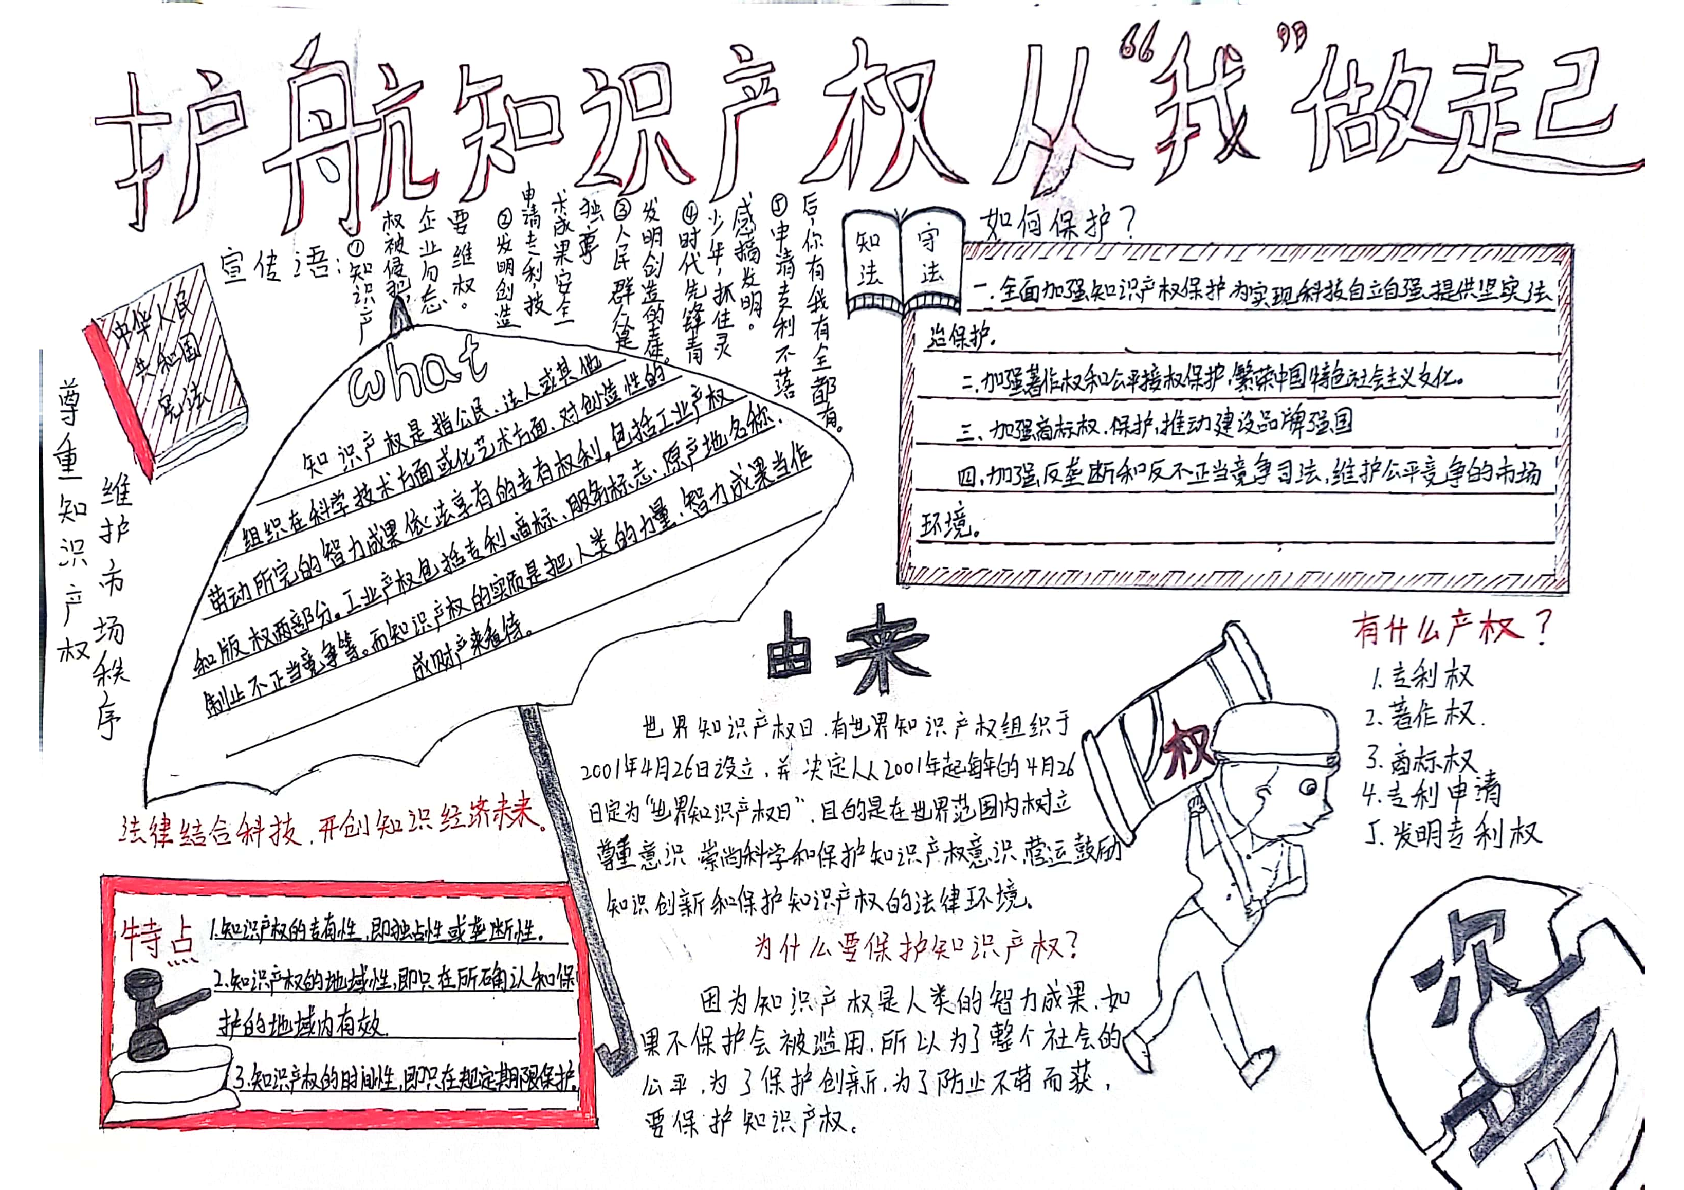 护航知识产权从“我”做起
宣传语：
①知识产
权被侵犯，
企业勿忘
要维权。
②发明创造
申请专利，技
术成果安全
独享
③人民群众是
发明创造的源。
④时代先锋青
少年，抓住灵
感搞发明。
⑤申请专利不落
后，你有我有全都有。
中华人民
共和国
宪法
尊重知识产权
维护市场秩序
what
知识产权是指公民、法人或其他
组织在科学技术方面或化艺术方面，对创造性的
劳动所完的智力成果依法享有的专有权利。包括工业产权
和版权两部分。工业产权包括专利、商标、服务标志、原产地名称、
制止不正当竞争等。而知识产权的实质是把人类的力量，智力成果当作
成财产来看待。
知法
守法
如何保护？
一.全面加强知识产权保护为实现科技自立自强提供坚实法
治保护.
二.加强著作权和公平接权保护，繁荣中国特色社会主义文化。
三、加强商标权.保护，推动建设品牌强国
四.加强反垄断和反不正当竞争司法，维护公平竞争的市场
环境。
由来
世界知识产权日.有世界知识产权组织于
2001年4月26日设立，并决定人从2001年起每年的4月26
日定为“世界知识产权日”，目的是在世界范围内树立
尊重意识，崇尚科学和保护知识产权意识，营运鼓励
知识创新和保护知识产权的法律环境。
权
有什么产权？
1.专利权
2.著作权.
3.商标权
4.专利申请
5.发明专利权
法律结合科技，开创知识经济未来。
特点
1.知识产权的专有性，即独占性或垄断性.
2.知识产权的地域性，即只在所确认和保
护的地域内有效.
3.知识产权的时间性，即只在规定期限保护.
为什么要保护知识产权？
因为知识产权是人类的智力成果，如
果不保护会被滥用，所以为了整个社会的
公平，为了保护创新，为了防止不劳而获，
要保护知识产权。